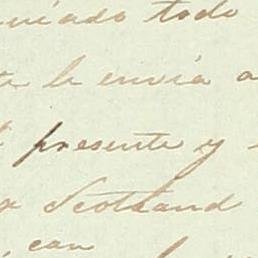 viado todo
le envia a
presente y
Scotland
can